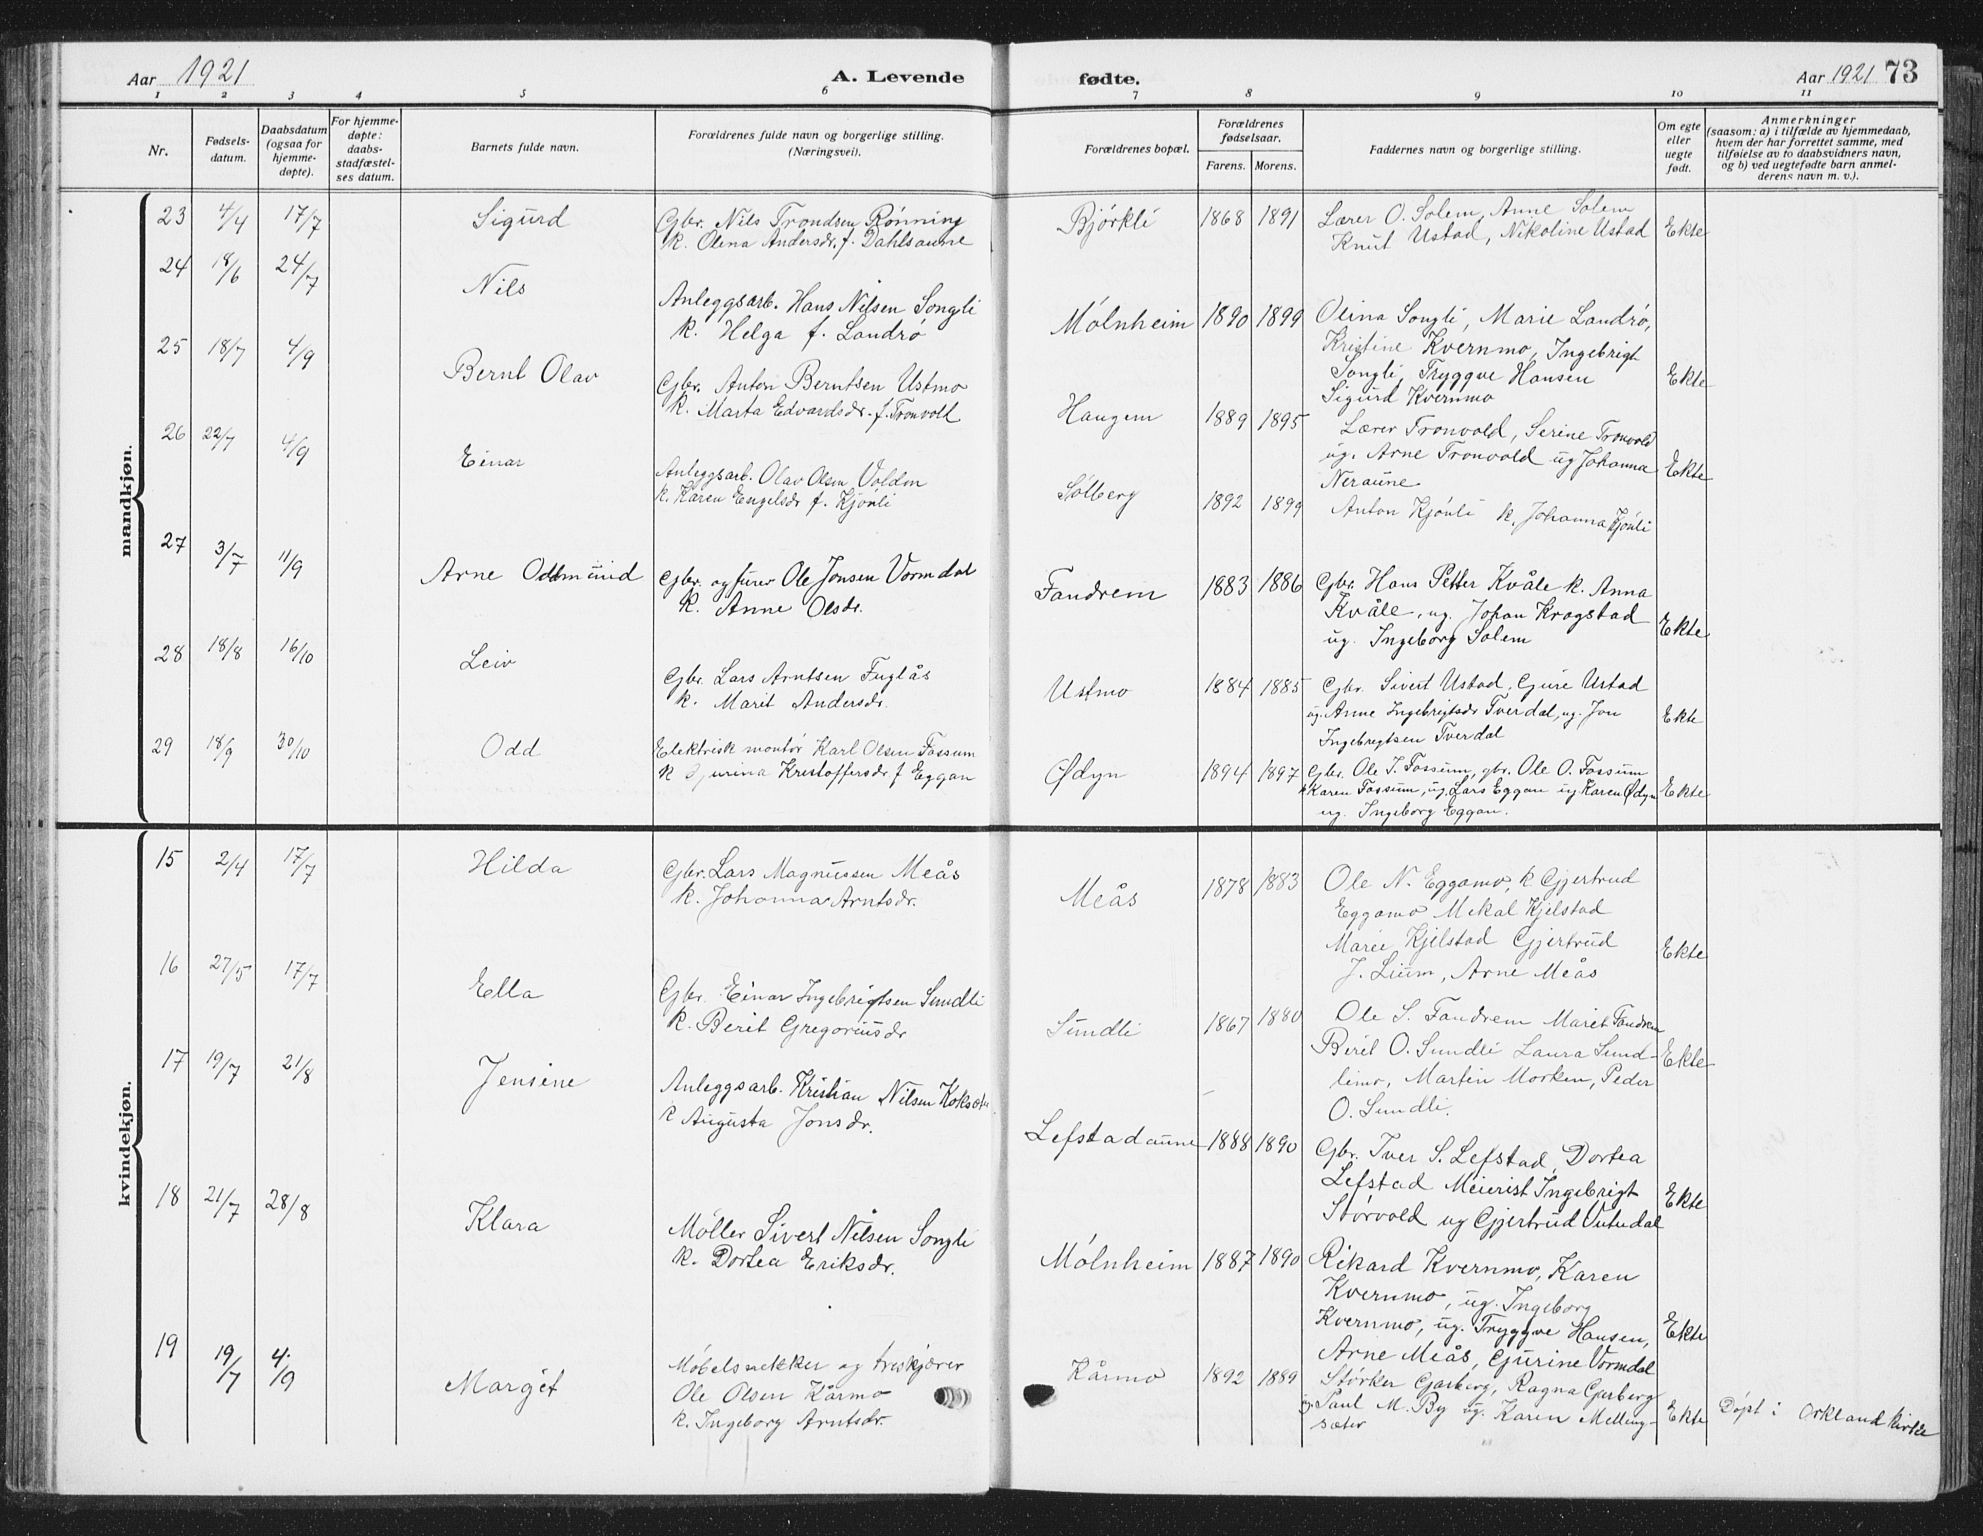 Aar 1921
A. Levende
fødte.
Aar 1921 73
1 2 3 4 5 6 7 8 9 10 11
Nr.
Fødsels-
datum.
Daabsdatum
(ogsaa for
hjemme-
døpte).
For hjemme-
døpte:
daabs-
stadfæstel-
ses datum.
Barnets fulde navn.
Forældrenes fulde navn og borgerlige stilling.
(Næringsvei).
Forældrenes bopæl.
Forældrenes
fødselsaar.
Farens. Morens.
Faddernes navn og borgerlige stilling.
Om egte
eller
uegte
født.
Anmerkninger
(saasom: a) i tilfælde av hjemmedaab,
hvem der har forrettet samme, med
tilføielse av to daabsvidners navn,
og b) ved uegtefødte barn anmel-
derens navn m. v.).
mandkjøn.
23 4/4 17/7 Sigurd
Gbr. Nils Trondsen Rönning
k. Olina Andersdr. f. Dahlsaune
Björkli 1868 1891
Lærer O. Solem, Anne Solem
Knut Ustad, Nikoline Ustad Ekte
24 18/6 24/7 Nils
Anleggsarb. Hans Nilsen Songli
k. Helga f. Landrö
Mölnheim 1890 1899
Olina Songli, Marie Landrö,
Kristine Kvernmo, Ingebrigt
Songli, Tryggve Hansen Ekte
Sigurd Kvernmo
25 18/7 4/9 Bernt Olav
Gbr. Anton Berntsen Ustmo
k. Marta Edvardsdr. f. Tronvold
Haugem 1889 1895
Lærer Tronvold, Serine Tronvold
ug. Arne Tronvold ug Johanna
Neraune Ekte
26 22/7 4/9 Einar
Anleggsarb. Olav Olsen Volden
k. Karen Engelsdr f. Kjönli
Solberg 1892 1899
Anton Kjönli k. Johanna Kjönli
27 3/7 11/9 Arne Oddmund
Gbr. og furer Ole Jonsen Vormdal
k. Anne Olsdr.
Fandrem 1883 1886
Gbr. Hans Petter Kvåle k. Anna
Kvåle, ug. Johan Krogstad
ug. Ingeborg Solem Ekte
28 18/8 16/10 Leiv
Gbr. Lars Arntsen Fuglås
k. Marit Andersdr.
Ustmo 1884 1885
Gbr. Sivert Ustad, Gure Ustad
ug. Anne Ingebrigtsdr Tverdal, ug. Jon
Ingebregtsen Tverdal Ekte
29 18/9 30/10 Odd
Elektrisk montör Karl Olsen Fossum
k Gjurina Kristoffersdr f Eggan
Ødyn 1894 1897
Gbr. Ole I. Fossum, gbr. Ole O. Fossum
k Karen Fossum, ug. Lars Eggan ug Karen Ødyn
ug. Ingeborg Eggan. Ekte
kvindekjøn.
15 2/4 17/7 Hilda
Gbr. Lars Magnussen Meås
k. Johanna Arntsdr.
Meås 1878 1883
Ole N. Eggamo, k. Gjertrud
Eggamo Mikal Kjelstad
Marie Kjelstad Gjertrud
J. Lium, Arne Meås Ekte
16 27/5 17/7 Ella
Gbr. Einar Ingebrigtsen Sundli
k. Berit Gregoriusdr
Sundli 1867 1880
Ole S. Fandrem Marit Fandrem
Berit O. Sundli Laura Sund-
limo, Martin Morken, Peder
O. Sundli. Ekte
17 19/7 21/8 Jensine
Anleggsarb. Kristian Nilsen Koksætr
k Augusta Jonsdr.
Lefstadaune 1888 1890
Gbr. Iver S. Lefstad, Dortea
Lefstad Meierist Ingebrigt
Stórvold ug Gjertrud Vutudal Ekte
18 21/7 28/8 Klara
Møller Sivert Nilsen Songli
k. Dortea Eriksdr.
Mölnheim 1887 1890
Rikard Kvernmo, Karen
Kvernmo, ug. Ingeborg
Kvernmo, ug. Tryggve Hansen,
Arne Meås, Gurine Vormdal Ekte
19 19/7 4/9 Margit
Møbelsnekker og treskjærer
Ole Olsen Kårmo
k. Ingeborg Arntsdr.
Kårmo 1892 1889
Størker Garberg, Ragna Garberg
ug Paul M. By ug. Karen Melling-
sæter Ekte Döpt i Orkland kirke